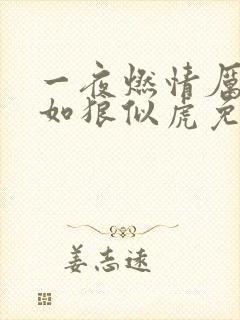 一夜燃情厉
如狼似虎免
姜志远